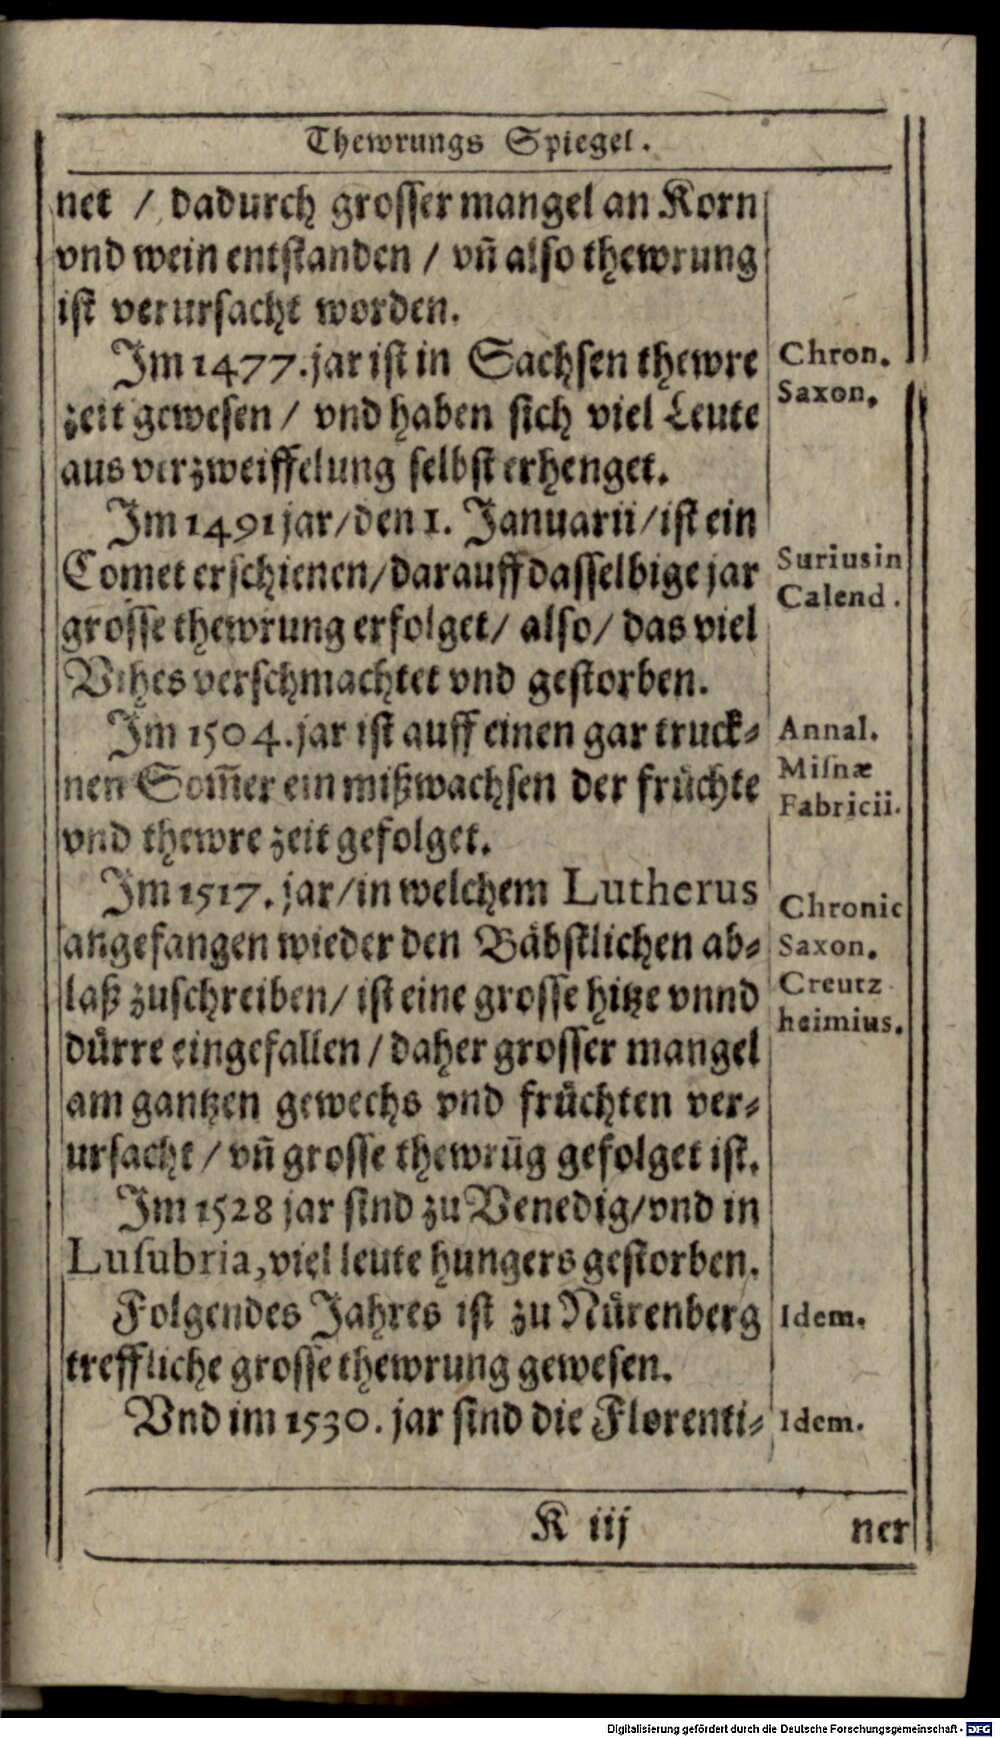 Thewrungs Spiegel.
net / dadurch grosser mangel an Korn
vnd wein entstanden / vñ also thewrung
ist verursacht worden.
Im 1477. jar ist in Sachsen thewre
zeit gewesen / vnd haben sich viel Leute
aus verzweiffelung selbst erhenget.
Im 1491 jar / den 1. Januarii / ist ein
Comet erschienen / darauff dasselbige jar
grosse thewrung erfolget / also / das viel
Vihes verschmachtet vnd gestorben.
Im 1504. jar ist auff einen gar truck-
nen Som̃er ein mißwachsen der früchte
vnd thewre zeit gefolget.
Im 1517. jar / in welchem Lutherus
angefangen wieder den Bäbstlichen ab-
laß zuschreiben / ist eine grosse hitze vnnd
dürre eingefallen / daher grosser mangel
am gantzen gewechs vnd früchten ver-
ursacht / vñ grosse thewrūg gefolget ist.
Im 1528 jar sind zu Venedig / vnd in
Lusubria, viel leute hungers gestorben.
Folgendes Jahres ist zu Nürenberg
treffliche grosse thewrung gewesen.
Vnd im 1530. jar sind die Florenti-
Chron.
Saxon.
Surius in
Calend.
Annal.
Misnæ
Fabricii.
Chronic
Saxon.
Creutz
heimius.
Idem.
Idem.
K iij
ner
Digitalisierung gefördert durch die Deutsche Forschungsgemeinschaft - DFG